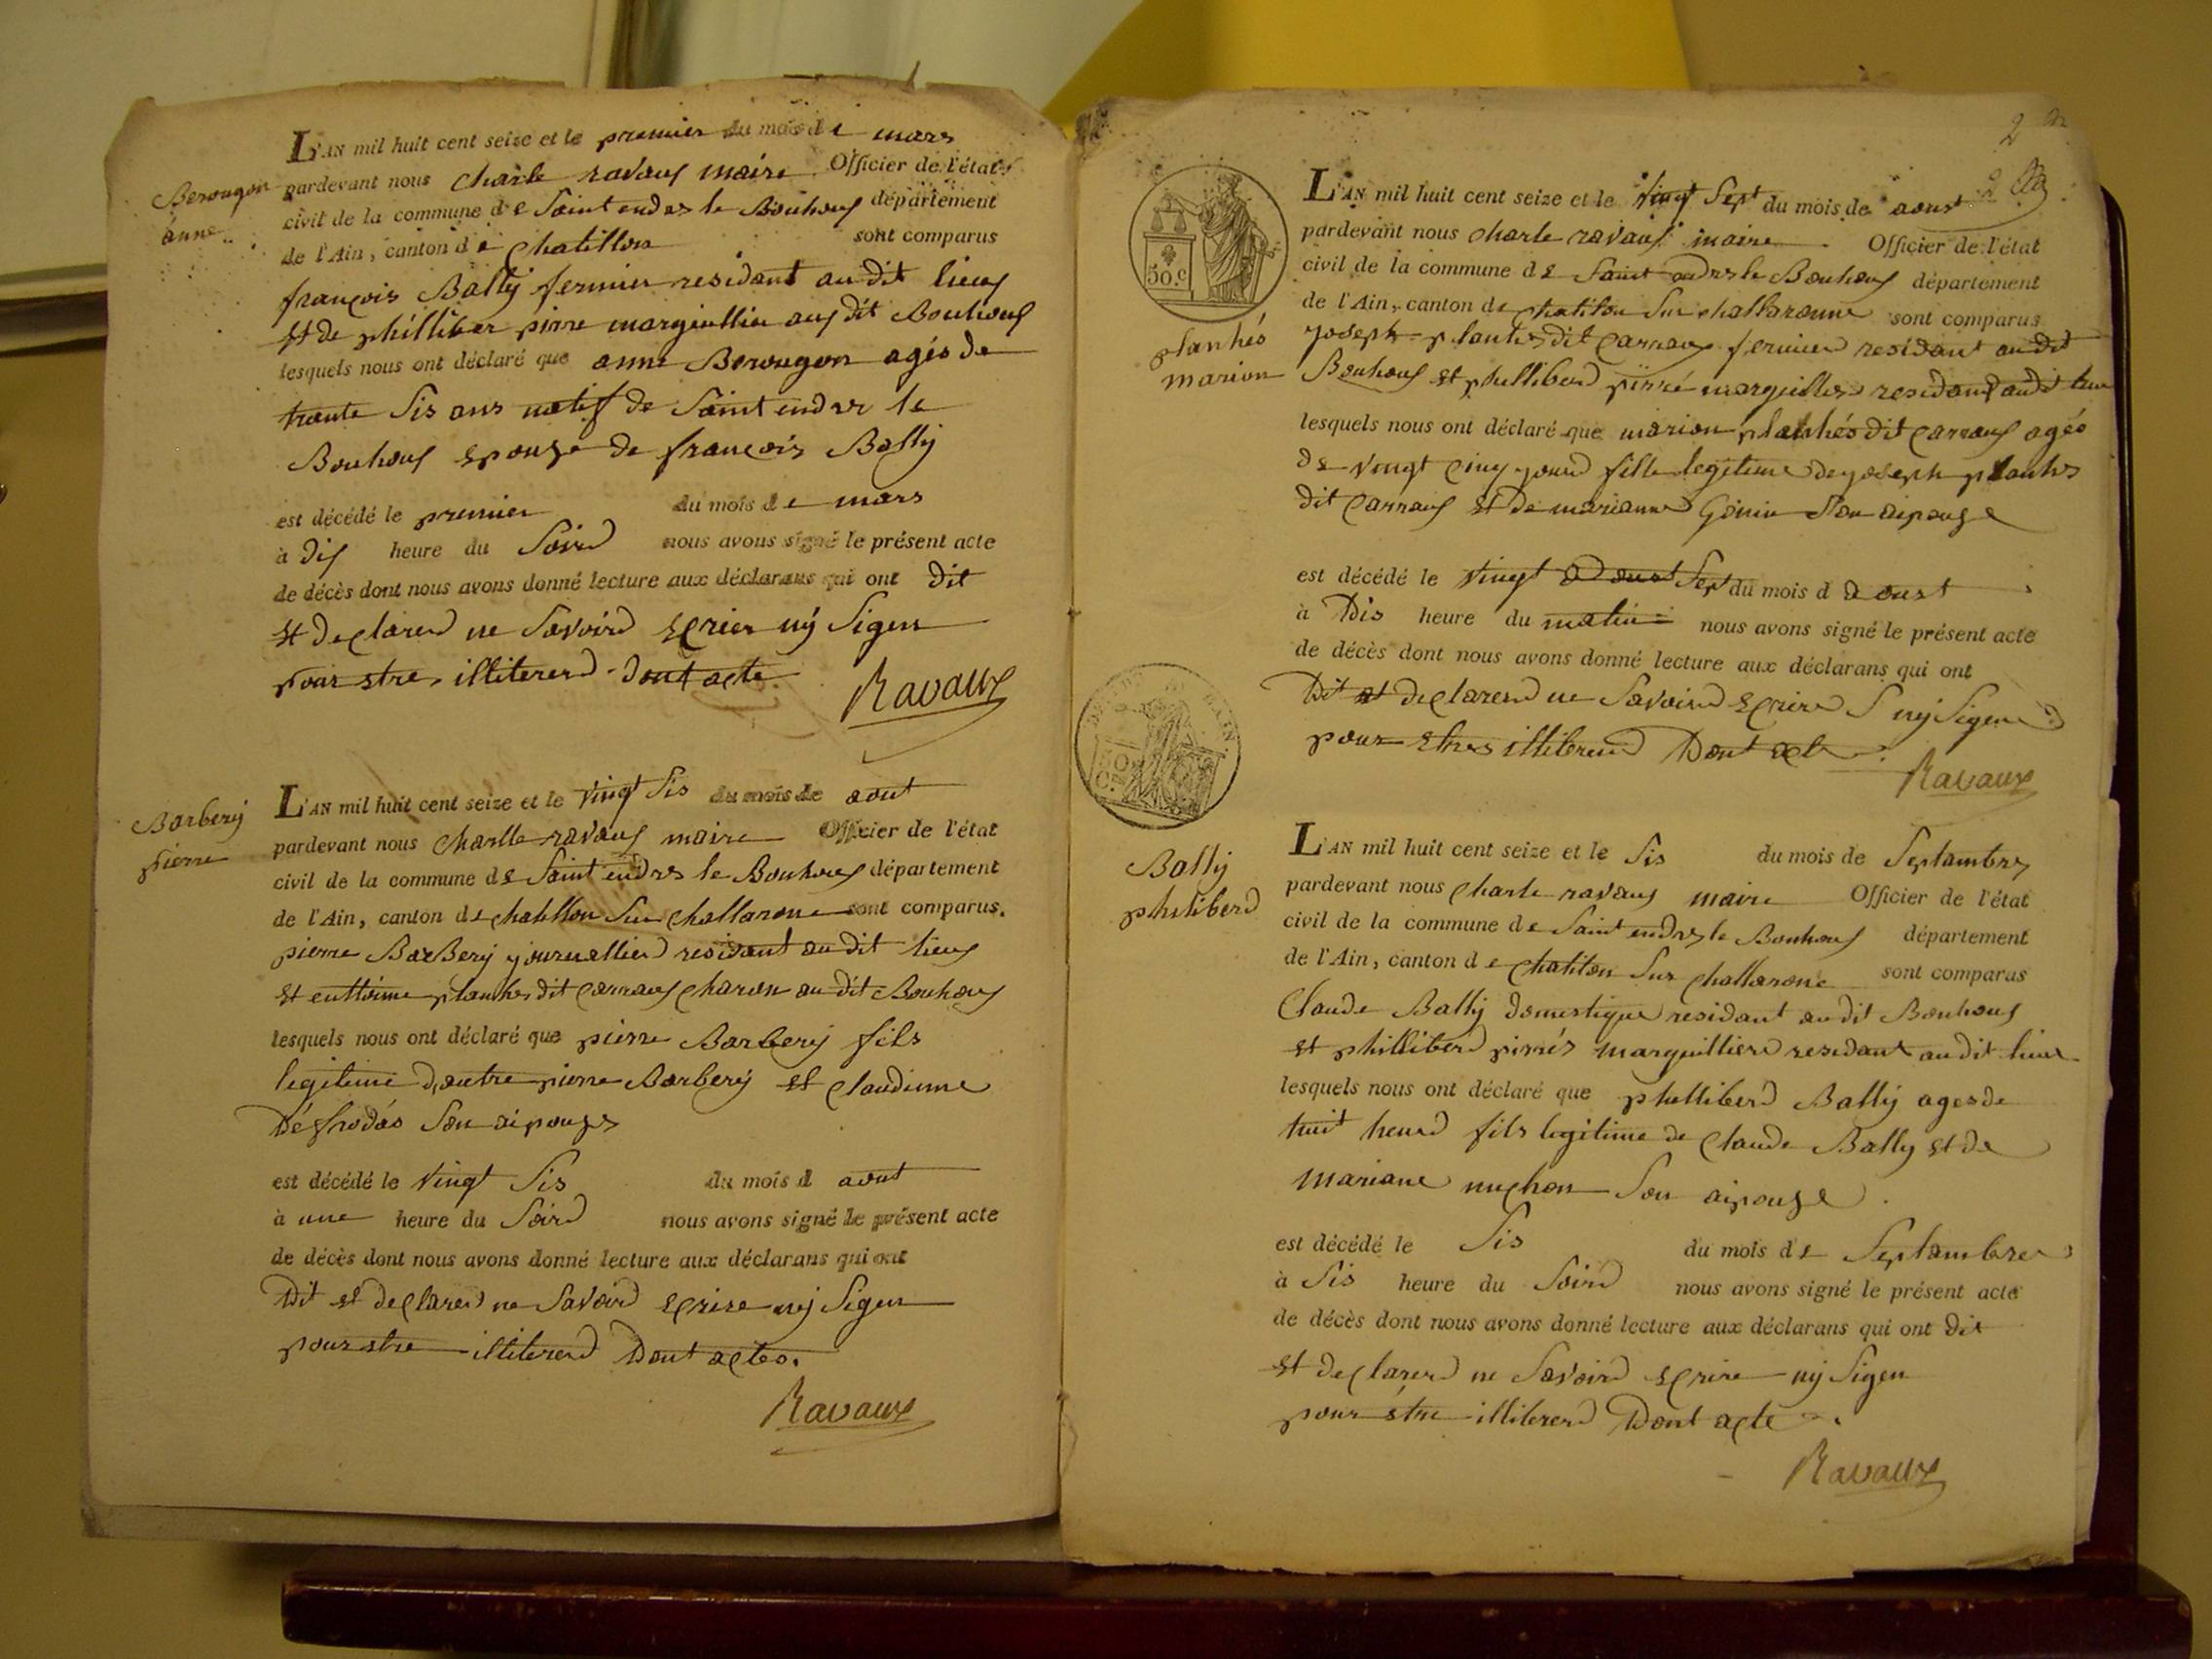 Berougon
anne
L'AN mil huit cent seize et le premier du mois de mars
pardevant nous Charle ravaux maire Officier de l'état
civil de la commune de Saint endres le Bouhoux département
de l'Ain, canton de Chatillon sont comparus
françois Bally fermier residant au dit lieux
et de philliber pirre margiullier aux dit Bouhoux
lesquels nous ont déclaré que anne Berougon agés de
trante Sis ans natif de Saint endres le
Bouhoux epouse de françois Bally
est décédé le premier du mois de mars
à dix heure du Soird nous avons signé le présent acte
de décès dont nous avons donné lecture aux déclarans qui ont dit
et declarerd ne Savoird ecrier ny Sigen
pour etre illitererd Dont acte
Ravaux
Barbery
pierre
L'AN mil huit cent seize et le vingt Sis du mois de aout
pardevant nous Charlle ravaux maire Officier de l'état
civil de la commune de Saint endres le Bouhoux département
de l'Ain, canton de Chatillon Sur Challarone sont comparus.
pierre BarBery journallierd residant au dit lieux
et planhes dit Carraux Charon au dit Bouhoux
lesquels nous ont déclaré que pierre Barbery fils
legitime d,autre pierre Barbery et Claudinne
Son aipouse
est décédé le vingt Sis du mois d aout
à une heure du Soird nous avons signé le présent acte
de décès dont nous avons donné lecture aux déclarans qui ont
Dit et declarerd ne Savoird ecrire ny Sigen
pour etre illitererd Dont actes.
Ravaux
2
50.c
planhés
marion
L'AN mil huit cent seize et le vingt Sept du mois de aoust
pardevant nous Charle ravaux maire Officier de l'état
civil de la commune de Saint andres le Bouhoux département
de l'Ain, canton de chatilon Sur challaronne sont comparus
joseph planhes dit Carraux fermierd residant au dit
Bouhoux et phelliberd pirré marguillier residant au dit lieu
lesquels nous ont déclaré que marion planhés dit Carraux agés
de vingt Cinq jourd fille legitime de joseph planhes
dit Carraux et de marianne Gonin Son aipouse
est décédé le vingt Sept du mois d aoust
à Dis heure du matin nous avons signé le présent acte
de décès dont nous avons donné lecture aux déclarans qui ont
Dit et declarerd ne Savoird ecrire ny Sigen
pour etres illitererd Dont acte
Ravaux
50
Bally
philiberd
L'AN mil huit cent seize et le Sis du mois de Septambre
pardevant nous Charle ravaux maire Officier de l'état
civil de la commune de Saint endres le Bouhoux département
de l'Ain, canton de Chatilon Sur Challarone sont comparus
Claude Bally domestique residant au dit Bouhoux
et philliberd pirrés marguillierd residant au dit lieux
lesquels nous ont déclaré que phelliberd Bally ages de
huit heurd fils legitime de Claude Bally et de
mariane michon Son aipouse
est décédé le Sis du mois de Septambre
à Sis heure du Soird nous avons signé le présent acte
de décès dont nous avons donné lecture aux déclarans qui ont dit
et declarerd ne Savoird ecrire ny Sigen
pour etre illitererd Dont acte
Ravaux